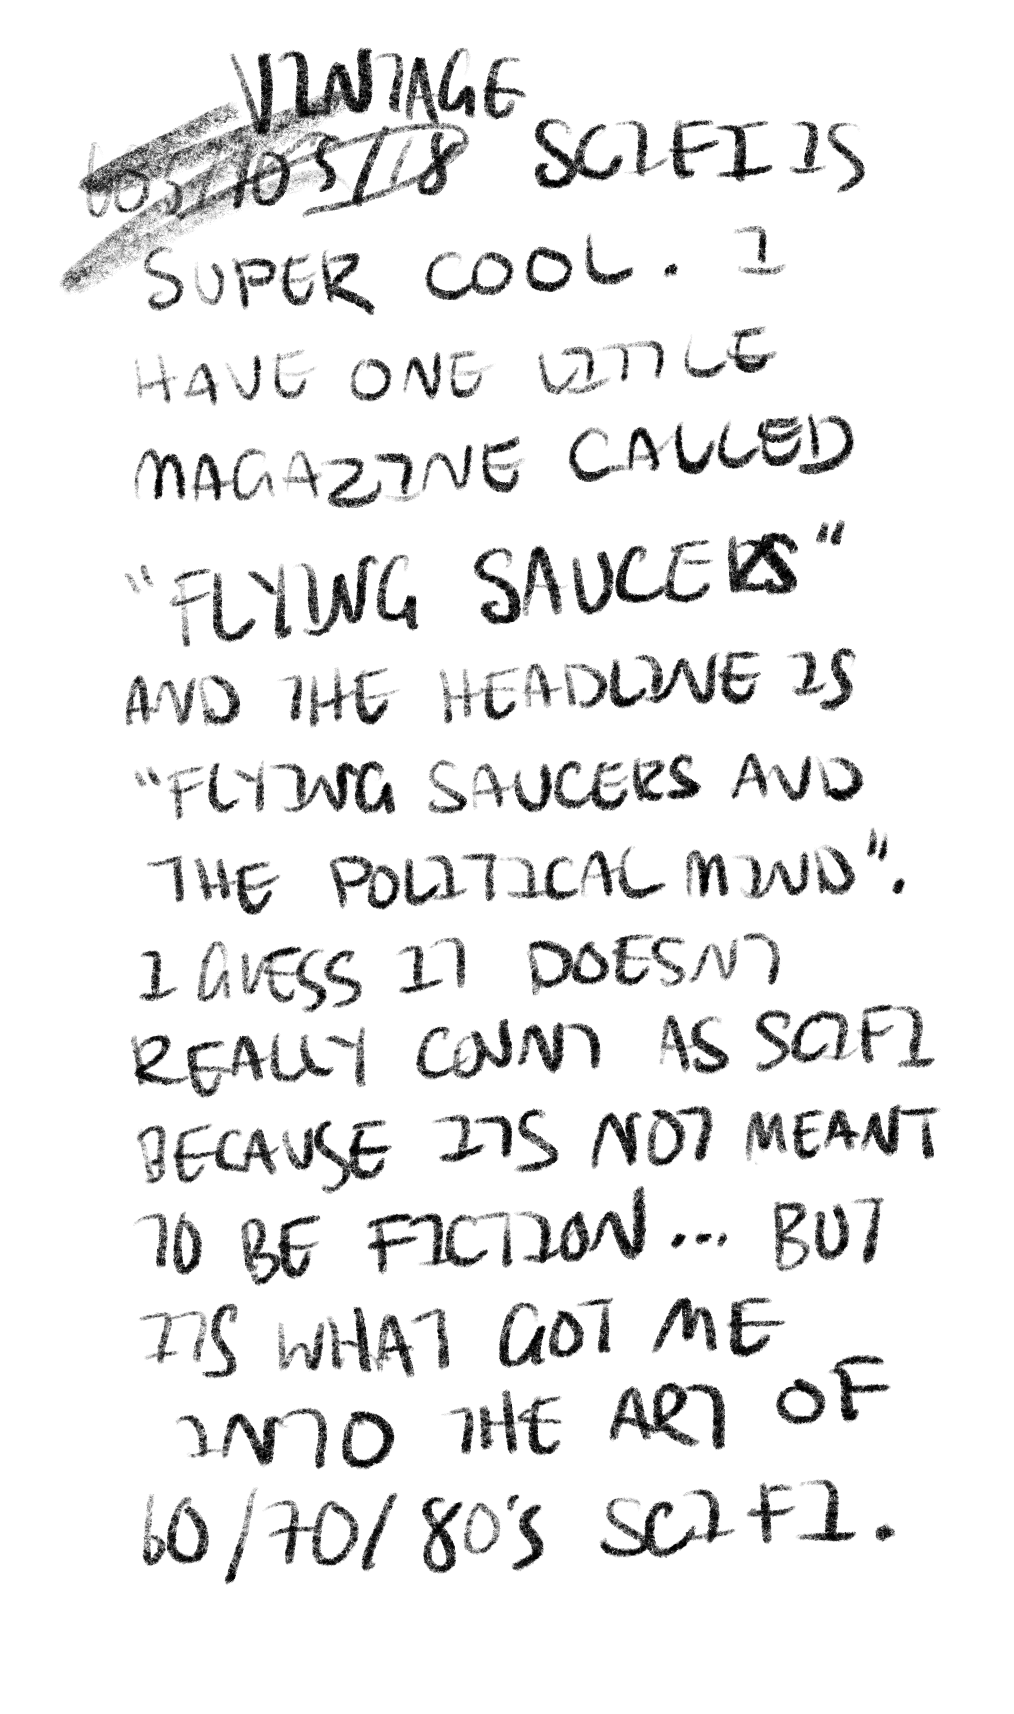 VINTAGE
60S/70S/8 SCIFI IS
SUPER COOL. I
HAVE ONE LITTLE
MAGAZINE CALLED
"FLYING SAUCERS"
AND THE HEADLINE IS
"FLYING SAUCERS AND
THE POLITICAL MIND".
I GUESS IT DOESNT
REALLY COUNT AS SCIFI
BECAUSE ITS NOT MEANT
TO BE FICTION... BUT
ITS WHAT GOT ME
INTO THE ART OF
60/70/80'S SCIFI.